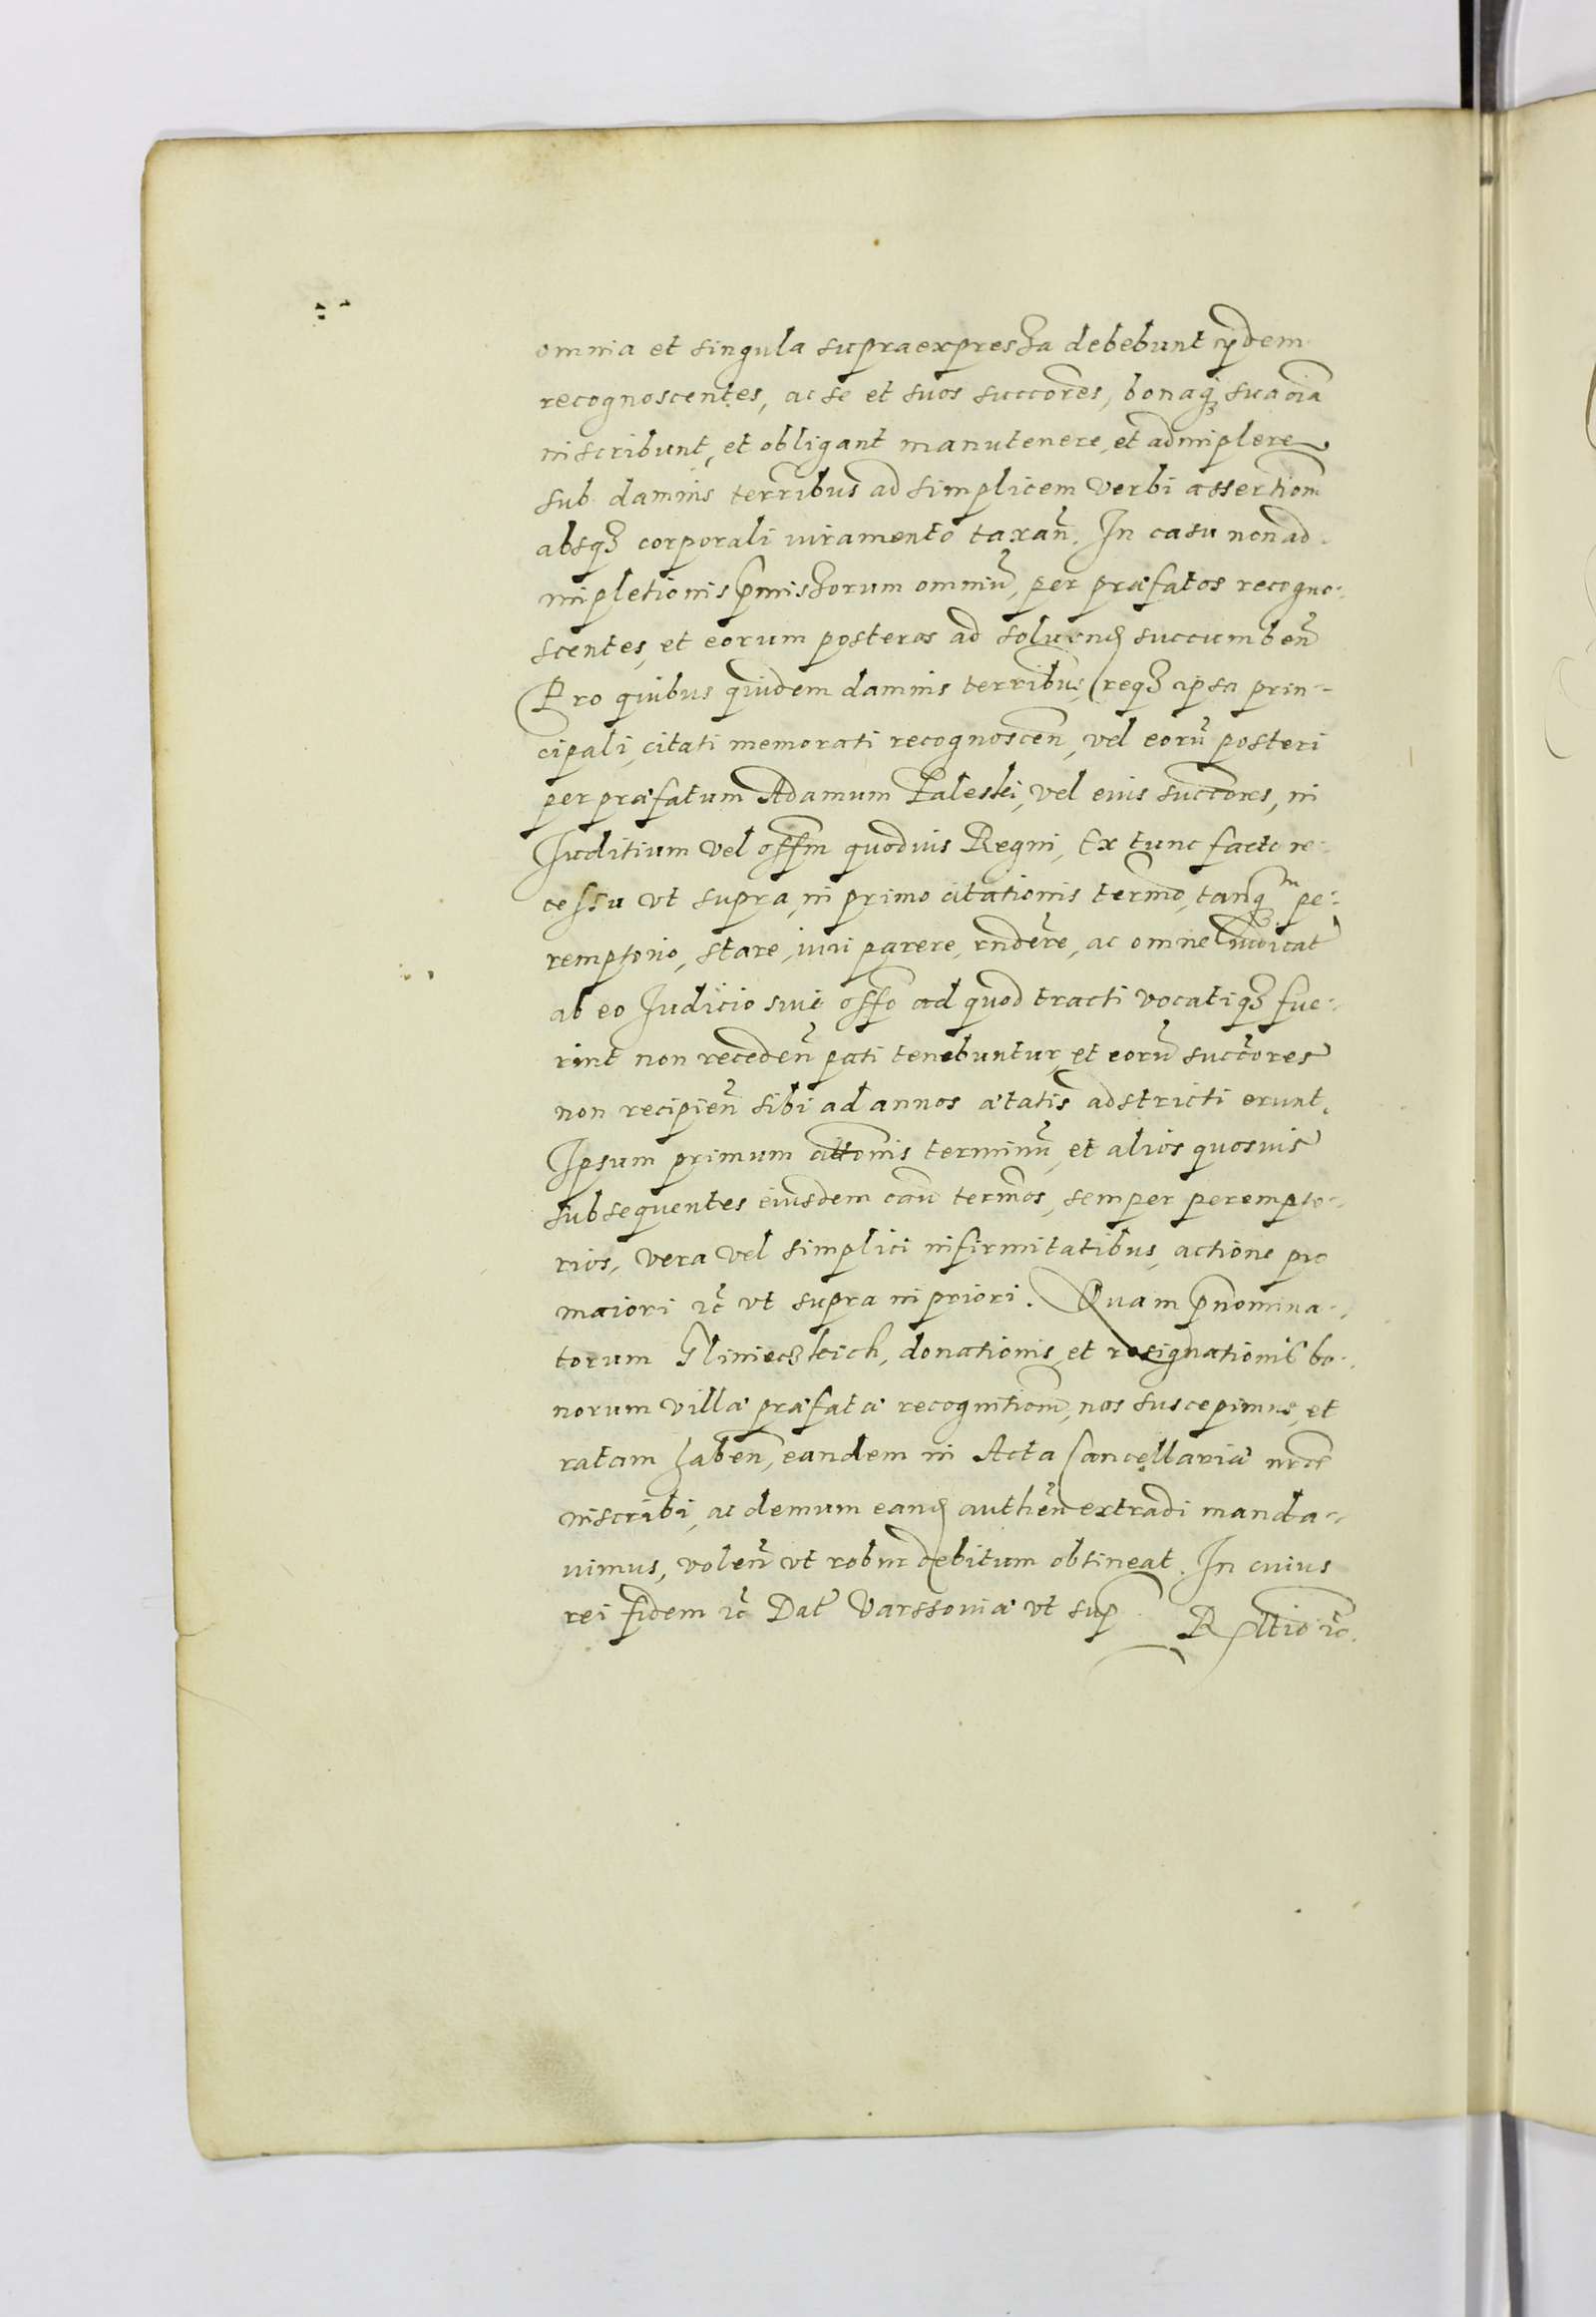 omnia et singula supraexpressa debebunt ijdem
recognoscentes, ac se et suos succores, bonaq3 sua oia
inscribunt, et obligant manutenere, et adimplere
sub damnis terribus ad simplicem verbi assertiom
absq3 corporali iuramento taxan. In casu non ad-
impletionis pmissorum omniu, per præfatos recogno-
scentes, et eorum posteros ad soluend succumben
Pro quibus quidem damnis terribus, req3 ipsa prin-
cipali, citati memorati recognoscen, vel eoru posteri
per præfatum Adamum Paleski, vel eius succores, in
Iuditium vel offm quoduis Regni, Ex tunc facto re-
cessu vt supra, in primo citationis termo, tanq3m pe-
remptorio, stare, iuri parere, rndere, ac omne iudicat
ab eo Iudicio siue offo ad quod tracti vocatiq3 fue-
rint non receden pati tenebuntur, et eoru succores
non recipien sibi ad annos ætatis adstricti erunt.
Ipsum primum attonis terminu, et alios quosuis
subsequentes eiusdem cau termos, semper perempto-
rios, vera vel simplici infirmitatibus, actione pro
maiori etc vt supra in priori. Quam pnomina-
torum Glinieczkich, donationis, et resignationis bo-
norum villæ præfatæ recognitiom, nos suscepimus, et
ratam haben, eandem in Acta Cancellariæ nræ
inscribi, ac demum eand authen extradi manda-
uimus, volen vt robur debitum obtineat. In cuius
rei fidem etc Dat Varssouiæ vt sup
Rltio etc.